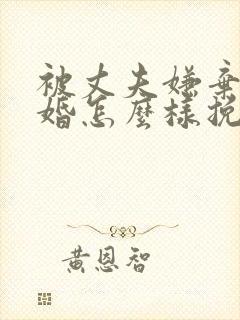 被丈夫嫌棄
婚怎麼樣挽
黃恩智